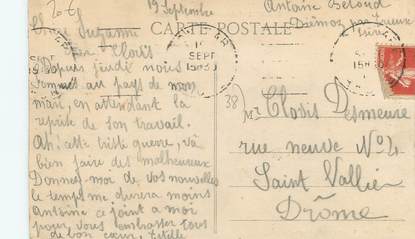 19 Septembre
Antoine Béroud
Chère Suzanne
CARTE POSTALE
Depuis jeudi nous
sommes au pays de mon
mari, en attendant la
reprise de son travail.
Ah! cette triste guerre, va
bien faire des malheureux
Donnes-moi de vos nouvelles
le temps me durera moins
Antoine se joint a moi
pour vous embrasser tous
de bon cœur.
SEPT
15H30
38
Mr Clodis Desmeure
rue neuve No 4
Saint Vallier
Drôme